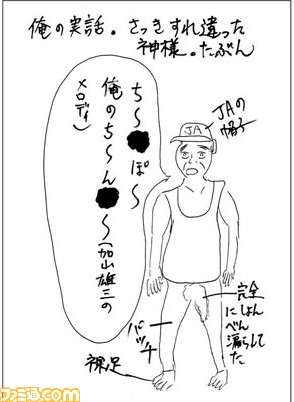 俺の実話。さっきすれ違った
神様。たぶん
JAの
帽子
JA
ち～●ぽ～
俺のち～ん●～(加山雄三の
メロディ)
完全
にしょん
べん
漏らしてた
パッチ
裸足
ファミ通.com